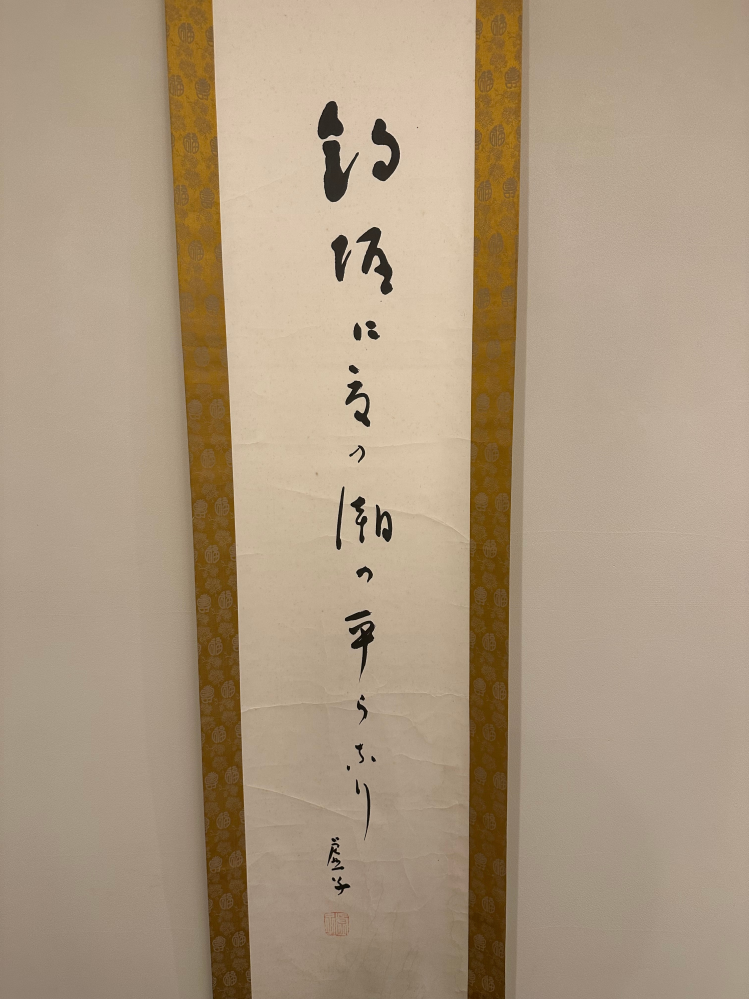 釣堀に夏の潮の平らなり
虚子